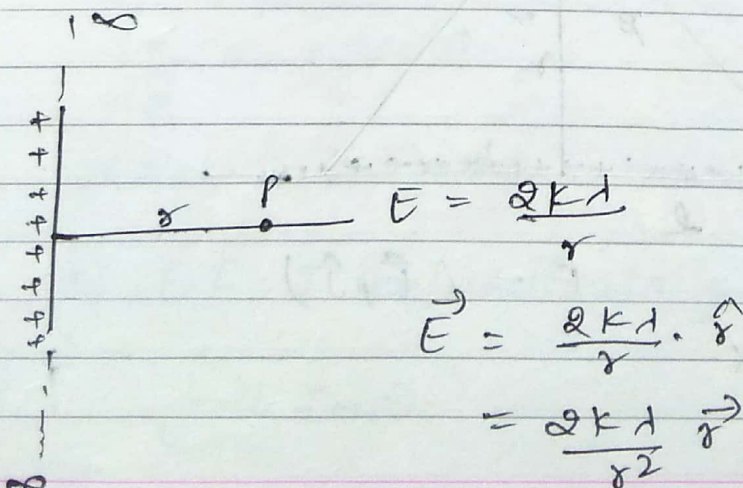 - ∞
+ + + + + + + +
r P E = 2Kλ / r
E⃗ = 2Kλ / r . r̂
= 2Kλ / r2 r⃗
∞